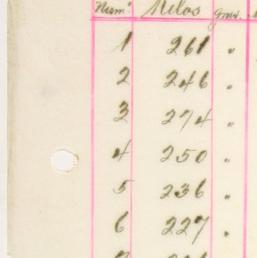 Num° Kilos gms.
1 261 "
2 246 "
3 274 "
4 250 "
5 236 "
6 227 "